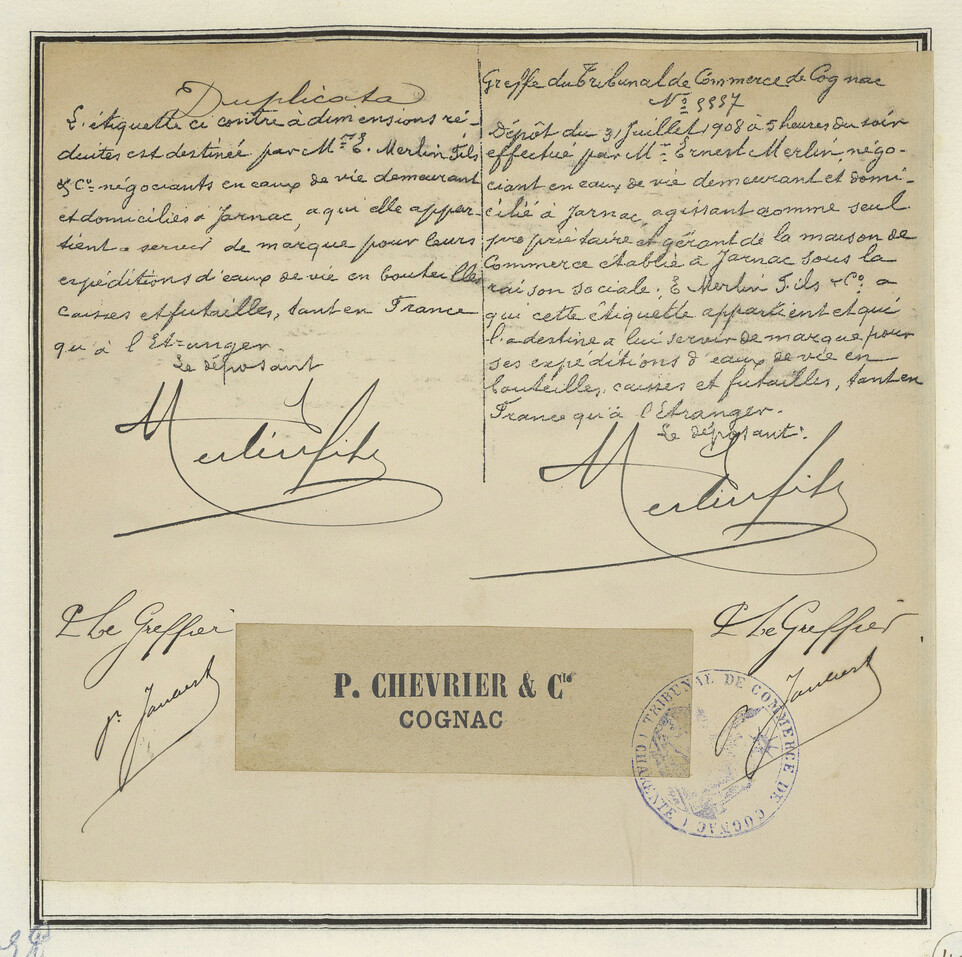 Duplicata
L'étiquette ci contre à dimensions ré-
duites est destinée par Mrs E. Merlin Fils
& Co négociants en eaux de vie demeurant
et domiciliés à Jarnac, a qui elle appar-
tient a servir de marque pour leurs
expéditions d'eaux de vie en bouteilles
caisses et futailles, tant en France
qu'à l'Etranger.
Le déposant
Merlin fils
P Le Greffier
Greffe du Tribunal de Commerce de Cognac
No
Dépôt du 31 Juillet 1908 à 5 heures du soir
effectué par Mr Ernest Merlin, négo-
ciant en eaux de vie demeurant et domi-
cilié à Jarnac, agissant comme seul
propriétaire et gérant de la maison de
Commerce etablie à Jarnac sous la
raison sociale: E Merlin Fils & Co. a
qui cette étiquette appartient et qui
l'a destine a lui servir de marque pour
ses expéditions d'eaux de vie en
bouteilles, caisses et futailles, tant en
France qu'à l'Etranger.
Le déposant:
Merlin fils
P Le Greffier
P. CHEVRIER & Cie
COGNAC
TRIBUNAL DE COMMERCE DE COGNAC (CHARENTE)